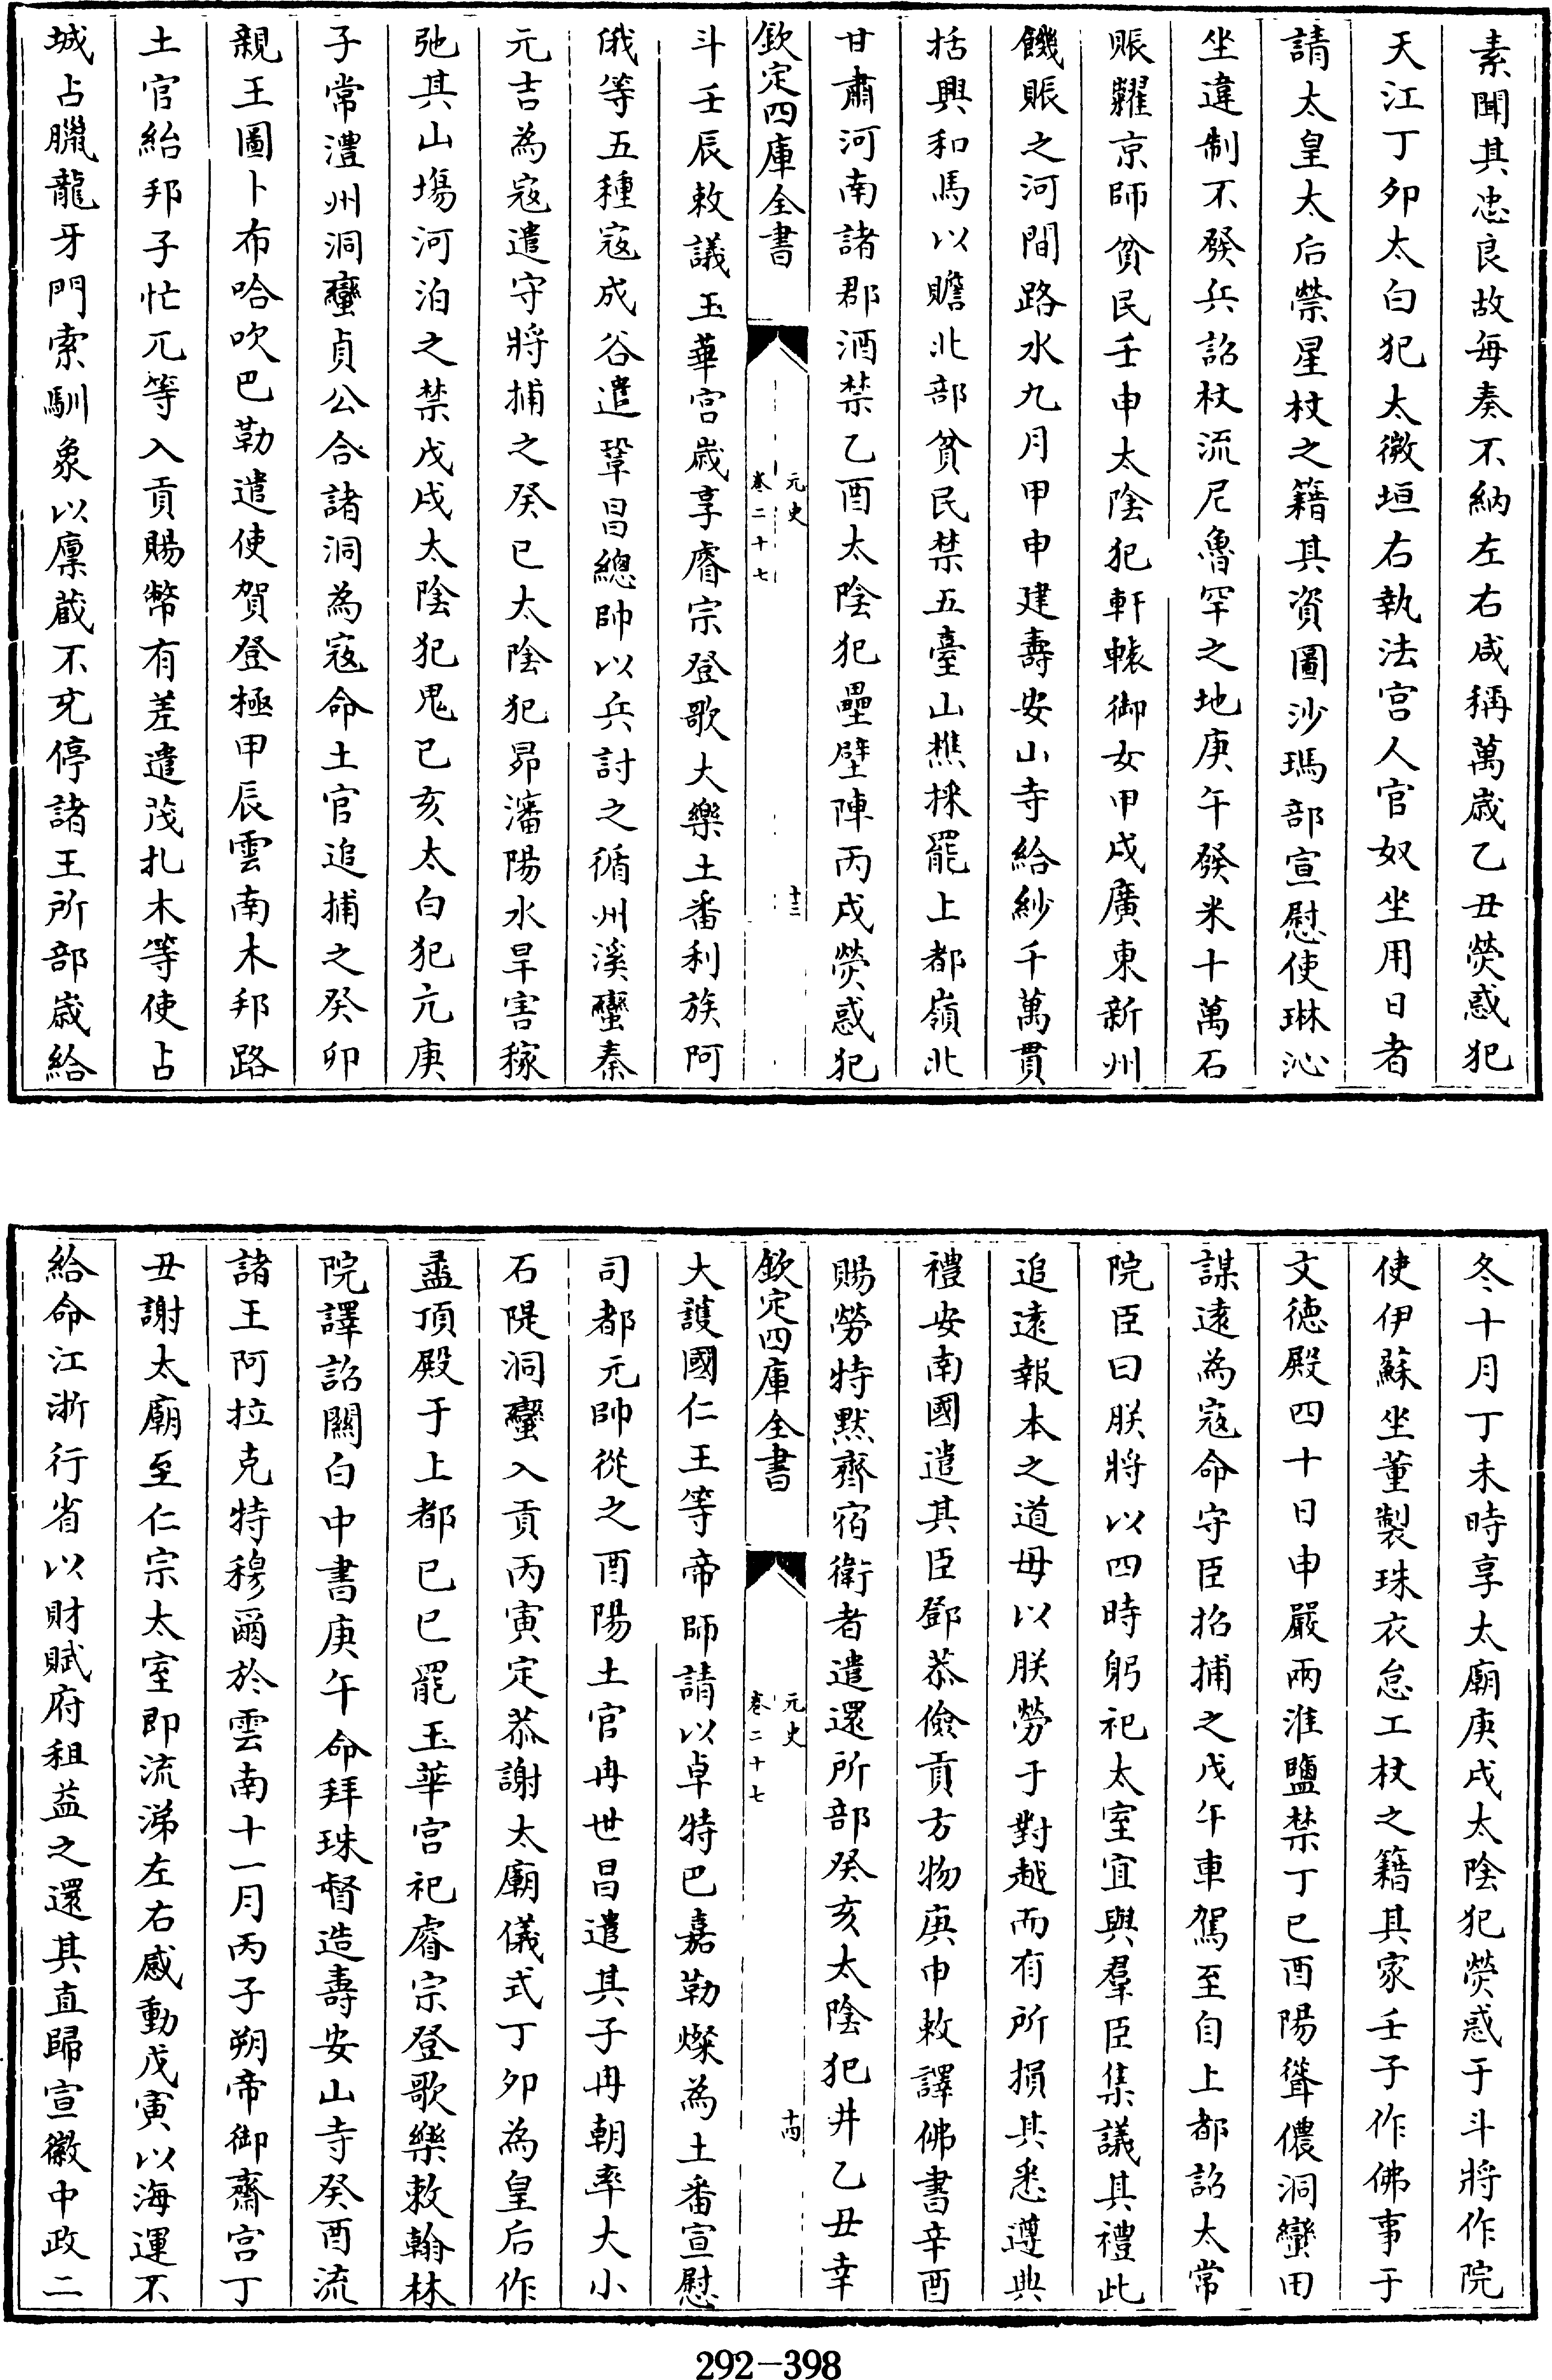 素聞其忠良故每奏不納左右咸稱萬嵗乙丑熒惑犯
天江丁夘太白犯太微垣右執法宫人官奴坐用日者
請太皇太后禜星杖之籍其資圖沙瑪部宣慰使琳沁
坐違制不發兵詔杖流尼魯罕之地庚午發米十萬石
賑糶京師貧民壬申太陰犯軒轅御女甲戌廣東新州
饑賑之河間路水九月甲申申建壽安山寺給鈔千萬貫
括興和馬以贍北部貧民禁五臺山樵採罷上都嶺北
甘肅河南諸郡酒禁乙酉太陰犯壘壁陣丙戌熒惑犯
欽定四庫全書
元史
卷二十七
十三
斗壬辰敕議玉華宫嵗享睿宗登歌大樂土番利族阿
俄等五種寇成谷遣鞏昌總帥以兵討之循州溪蠻秦
元吉為寇遣守將捕之癸巳太陰犯昴瀋陽水旱害稼
弛其山塲河泊之禁戊戌太陰犯鬼已亥太白犯亢庚
子常澧州洞蠻貞公合諸洞為寇命土官追捕之癸卯
親王圖卜布哈吹巴勒遣使賀登極甲辰雲南木邦路
土官紿邦子忙兀等入貢賜幣有差遣茂扎木等使占
城占臘龍牙門索馴象以廩藏不充停諸王所部嵗給
冬十月丁未時享太廟庚戌太陰犯熒惑于斗將作院
使伊蘇坐董製珠衣怠工杖之籍其家壬子作佛事于
文德殿四十日申嚴兩淮鹽禁丁巳酉陽聳儂洞蠻田
謀逺為寇命守臣招捕之戊午車駕至自上都詔太常
院臣曰朕將以四時躬祀太室宜與羣臣集議其禮此
追逺報本之道毋以朕勞于對越而有所損其悉遵典
禮安南國遣其臣鄧恭儉貢方物庚申敕譯佛書辛酉
賜勞特黙齊宿衛者遣還所部癸亥太陰犯井乙丑幸
欽定四庫全書
元史
卷二十七
十四
大護國仁王等帝師請以卓特巴嘉勒燦為土番宣慰
司都元帥從之酉陽土官冉世昌遣其子冉朝率大小
石隄洞蠻入貢丙寅定恭謝太廟儀式丁夘為皇后作
盝頂殿于上都已巳罷玉華宫祀睿宗登歌樂敕翰林
院譯詔關白中書庚午命拜珠督造壽安山寺癸酉流
諸王阿拉克特穆爾於雲南十一月丙子朔帝御齋宫丁
丑謝太廟至仁宗太室即流涕左右感動戊寅以海運不
給命江浙行省以財賦府租益之還其直歸宣徽中政二
292-398